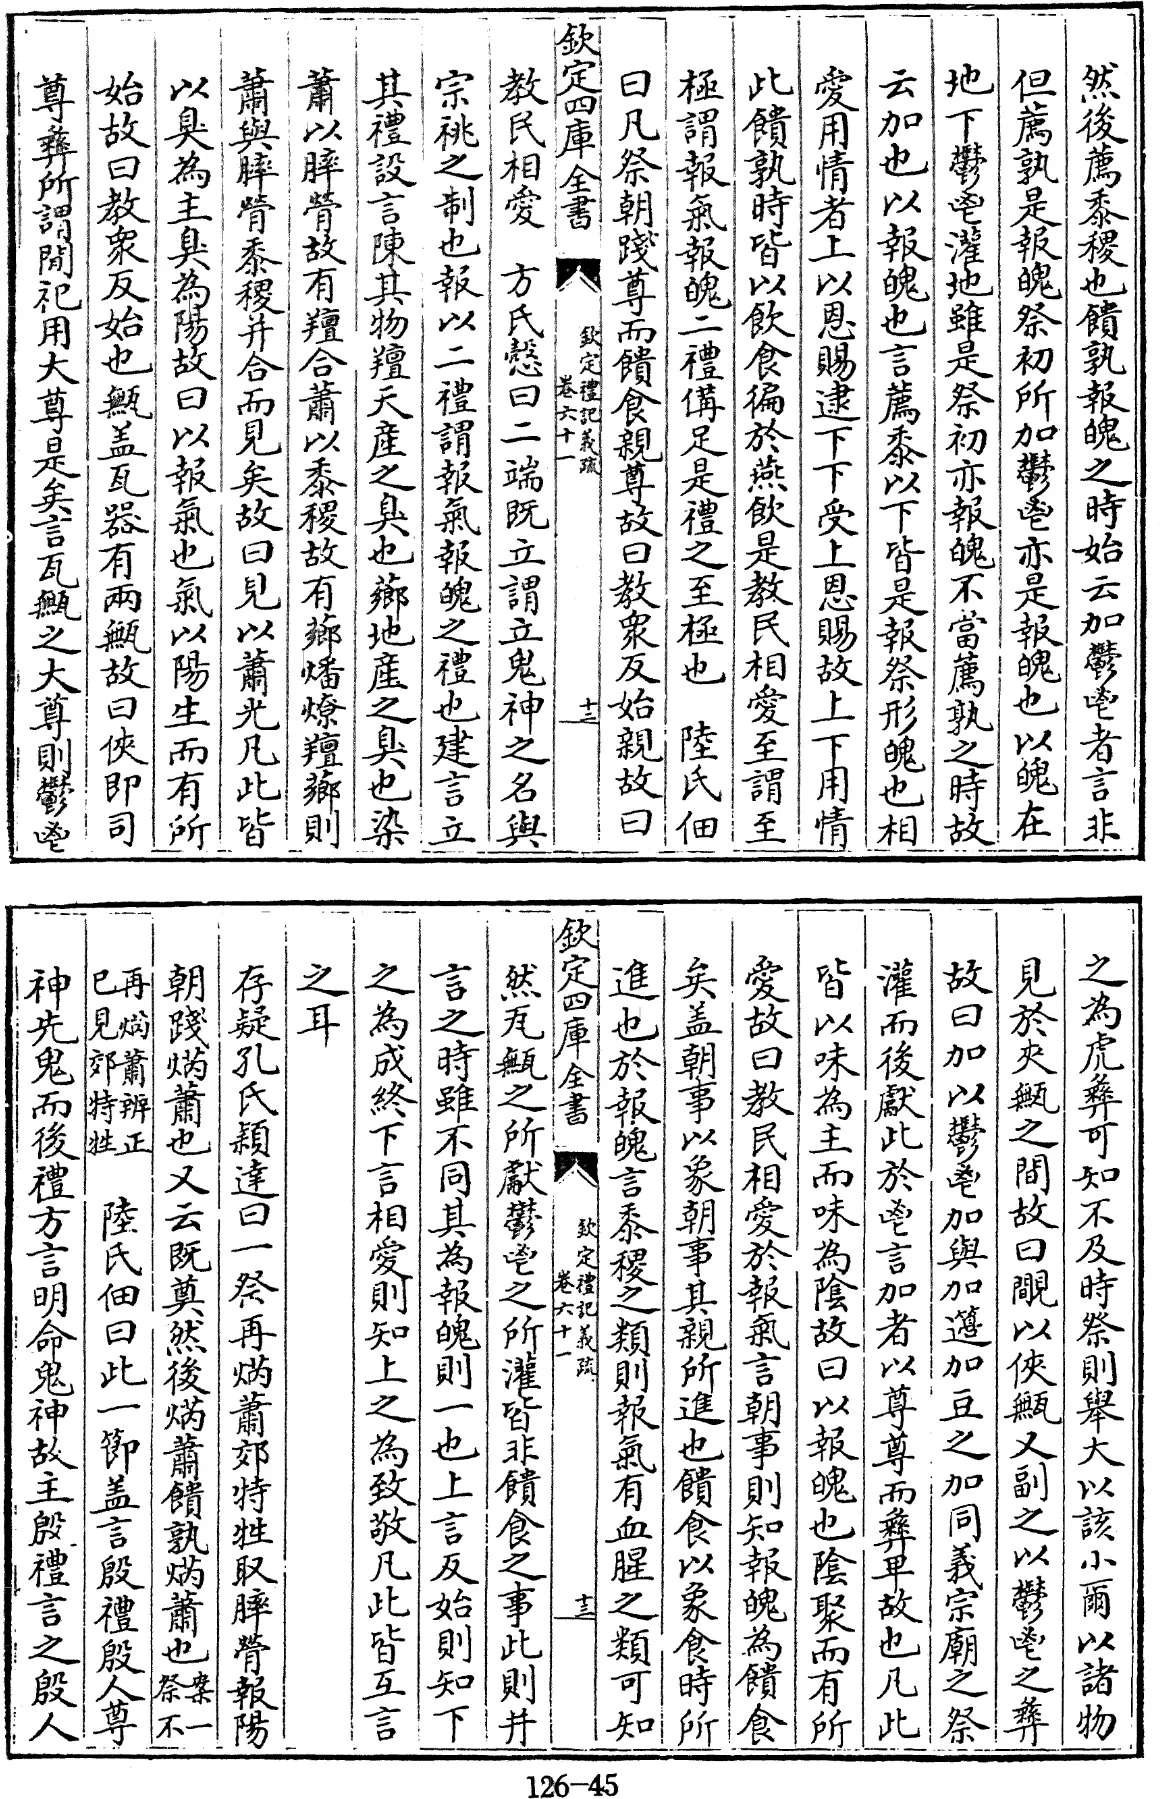 然後薦黍稷也饋孰報魄之時始云加鬱鬯者言非
但薦孰是報魄祭初所加鬱鬯亦是報魄也以魄在
地下鬱鬯灌地雖是祭初亦報魄不當薦孰之時故
云加也以報魄也言薦黍以下皆是報祭形魄也相
愛用情者上以恩賜逮下下受上恩賜故上下用情
此饋孰時皆以飲食徧於燕飲是教民相愛至謂至
極謂報氣報魄二禮備足是禮之至極也　陸氏佃
曰凡祭朝踐尊而饋食親尊故曰教衆反始親故曰
欽定四庫全書
欽定禮記義疏
卷六十一
十三
教民相愛　方氏慤曰二端既立謂立鬼神之名與
宗祧之制也報以二禮謂報氣報魄之禮也建言立
其禮設言陳其物羶天產之臭也薌地產之臭也染
蕭以膟膋故有羶合蕭以黍稷故有薌燔燎羶薌則
蕭與膟膋黍稷并合而見矣故曰見以蕭光凡此皆
以臭為主臭為陽故曰以報氣也氣以陽生而有所
始故曰教衆反始也甒盖瓦器有兩甒故曰俠即司
尊彝所謂閒祀用大尊是矣言瓦甒之大尊則鬱鬯
之為虎彝可知不及時祭則舉大以該小爾以諸物
見於夾甒之間故曰覸以俠甒又副之以鬱鬯之彝
故曰加以鬱鬯加與加籩加豆之加同義宗廟之祭
灌而後獻此於鬯言加者以尊尊而彝卑故也凡此
皆以味為主而味為陰故曰以報魄也陰聚而有所
愛故曰教民相愛於報氣言朝事則知報魄為饋食
矣盖朝事以象朝事其親所進也饋食以象食時所
進也於報魄言黍稷之類則報氣有血腥之類可知
欽定四庫全書
欽定禮記義疏
卷六十一
十三
然瓦甒之所獻鬱鬯之所灌皆非饋食之事此則并
言之時雖不同其為報魄則一也上言反始則知下
之為成終下言相愛則知上之為致敬凡此皆互言
之耳
存疑孔氏穎達曰一祭再焫蕭郊特牲取膟膋報陽
朝踐焫蕭也又云既奠然後焫蕭饋孰焫蕭也案一
祭不
再焫蕭辨正
已見郊特牲　陸氏佃曰此一節盖言殷禮殷人尊
神先鬼而後禮方言明命鬼神故主殷禮言之殷人
126-45